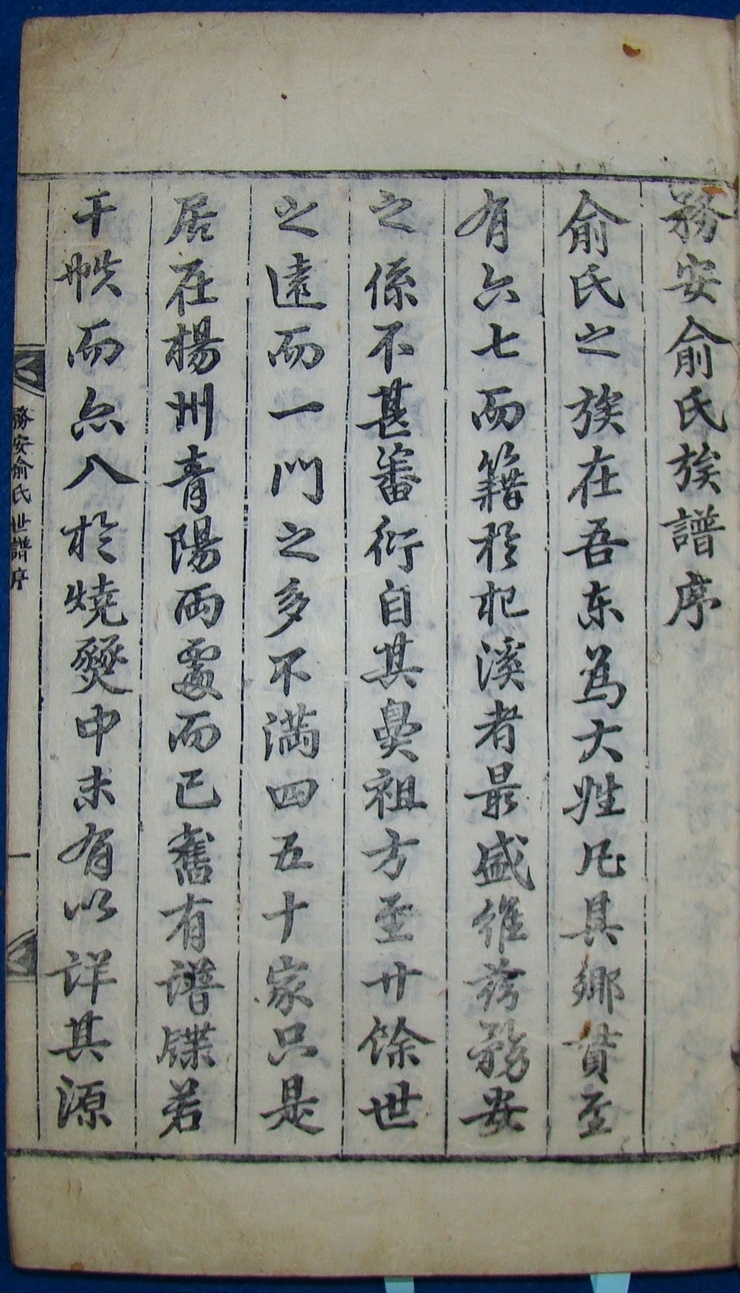 務安俞氏族譜序
俞氏之族在吾东為大姓凡具鄉貫至
有六七而籍於杞溪者最盛維玆務安
之係不甚蕃衍自其鼻祖方至廿馀世
之遠而一門之多不滿四五十家只是
居在楊州青陽兩處而已舊有譜牒若
干帙而亦入於燒燹中未有以詳其源
務安俞氏世譜序
一